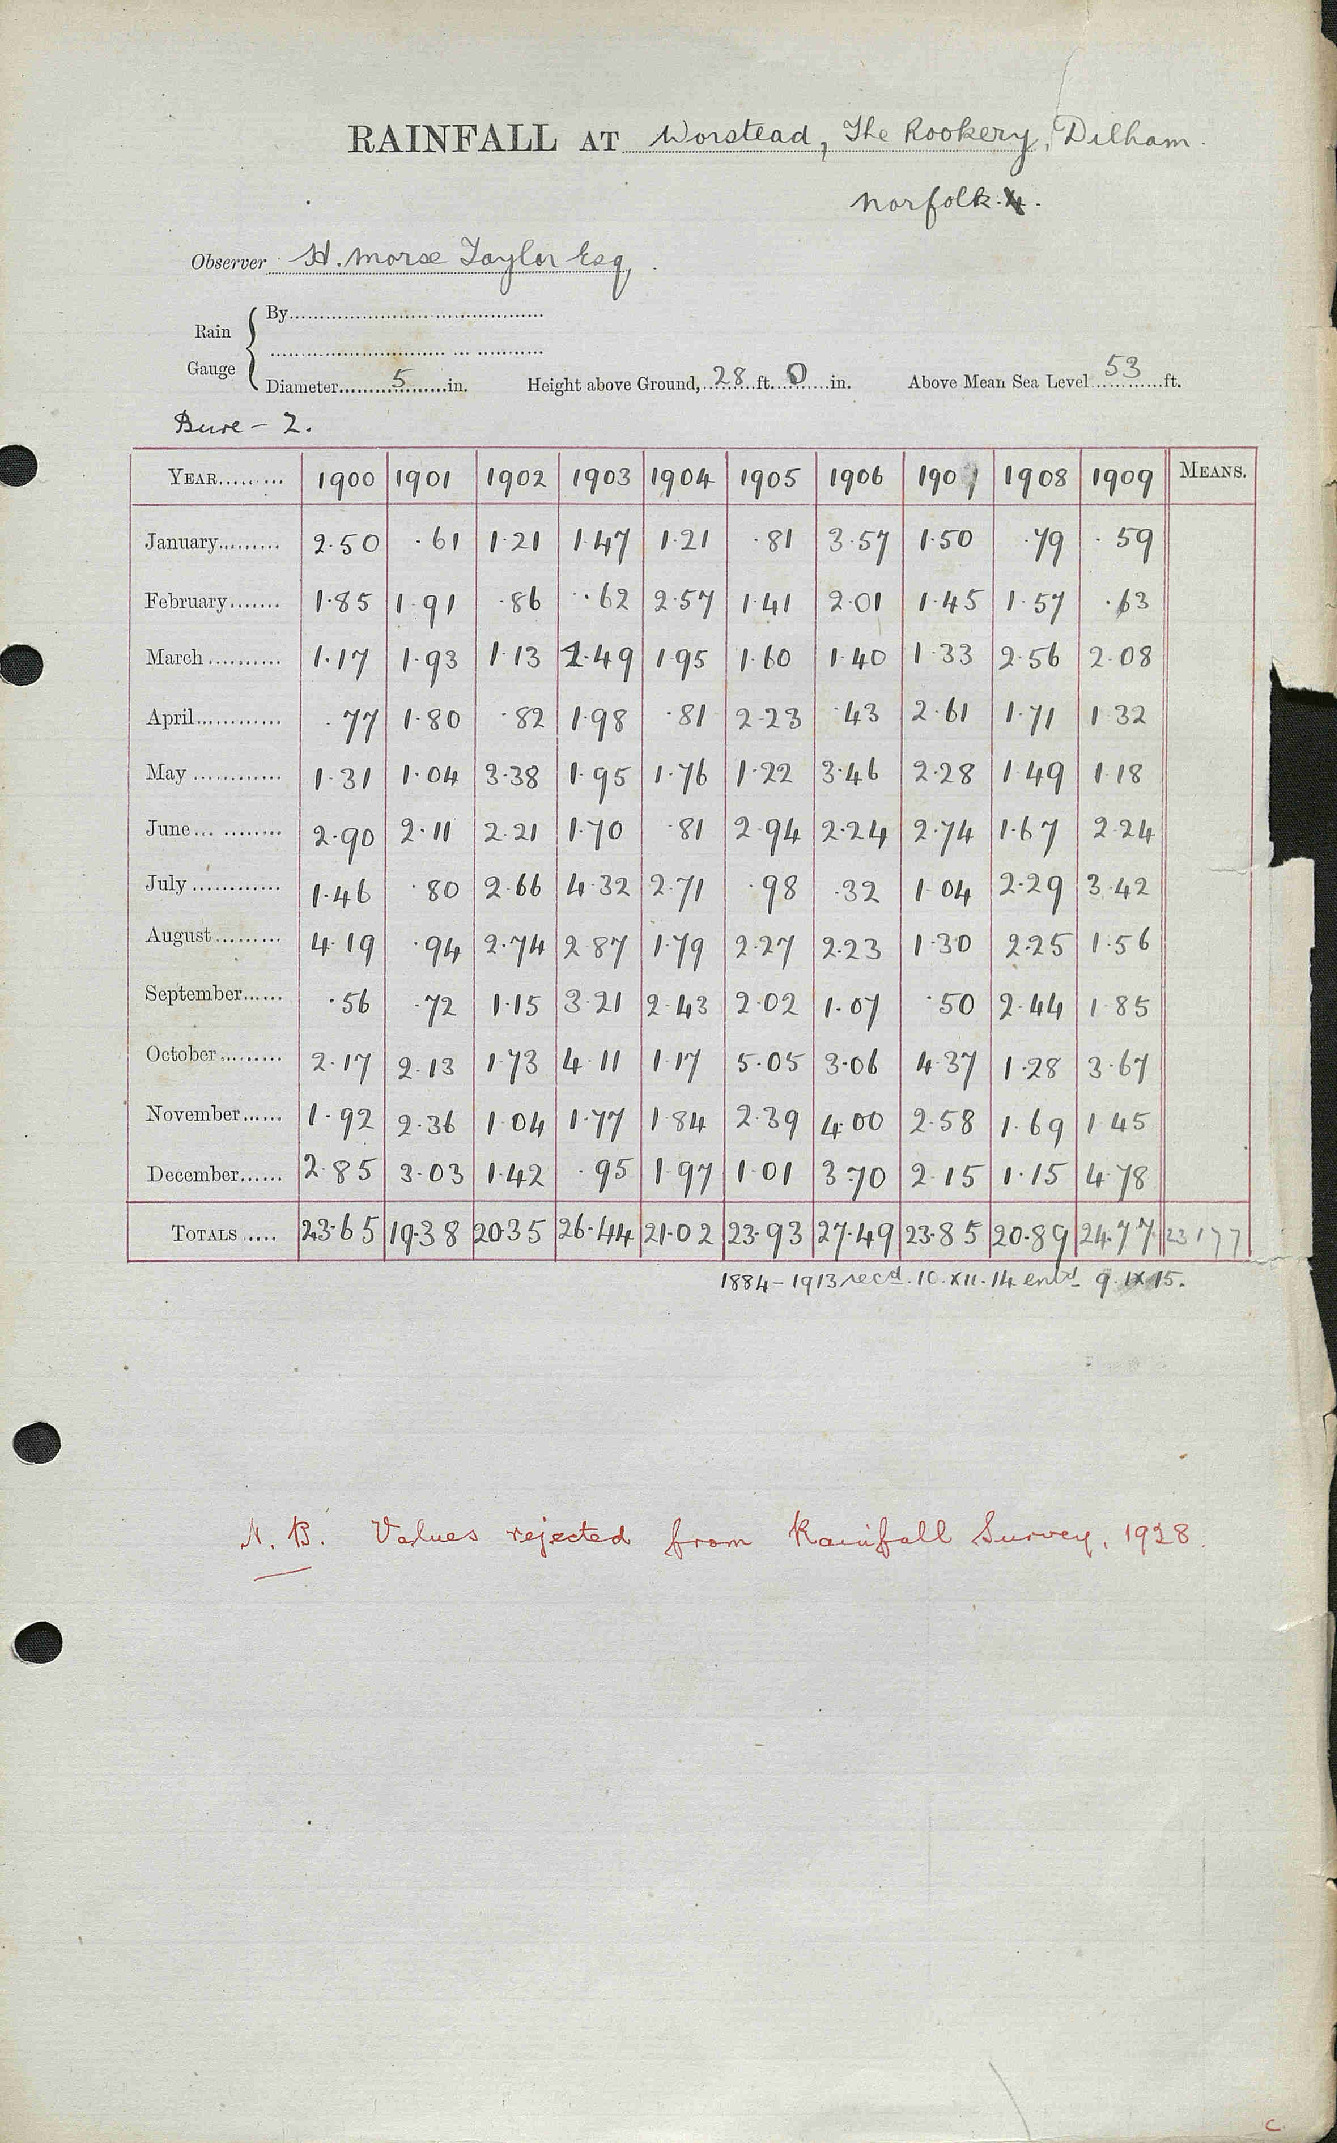 RAINFALL AT Worstead, The Rookery, Dilham
Norfolk.
Observer H. Morse Taylor Esq,
Rain Gauge { By
Diameter 5 in. Height above Ground, 28 ft. 0 in. Above Mean Sea Level 53 ft.
Bure - 2.
YEAR 1900 1901 1902 1903 1904 1905 1906 1907 1908 1909 MEANS.
January 2.50 .61 1.21 1.47 1.21 .81 3.57 1.50 .79 .59
February 1.85 1.91 .86 .62 2.57 1.41 2.01 1.45 1.57 .63
March 1.17 1.93 1.13 1.49 1.95 1.60 1.40 1.33 2.56 2.08
April .77 1.80 .82 1.98 .81 2.23 .43 2.61 1.71 1.32
May 1.31 1.04 3.38 1.95 1.76 1.22 3.46 2.28 1.49 1.18
June 2.90 2.11 2.21 1.70 .81 2.94 2.24 2.74 1.67 2.24
July 1.46 .80 2.66 4.32 2.71 .98 .32 1.04 2.29 3.42
August 4.19 .94 2.74 2.87 1.79 2.27 2.23 1.30 2.25 1.56
September .56 .72 1.15 3.21 2.43 2.02 1.07 .50 2.44 1.85
October 2.17 2.13 1.73 4.11 1.17 5.05 3.06 4.37 1.28 3.67
November 1.92 2.36 1.04 1.77 1.84 2.39 4.00 2.58 1.69 1.45
December 2.85 3.03 1.42 .95 1.97 1.01 3.70 2.15 1.15 4.78
TOTALS 23.65 19.38 20.35 26.44 21.02 23.93 27.49 23.85 20.89 24.77 23177
1884-1913 recd. 10.XII.14 entd 9.IX.15.
N.B. Values rejected from Rainfall Survey, 1928.
C